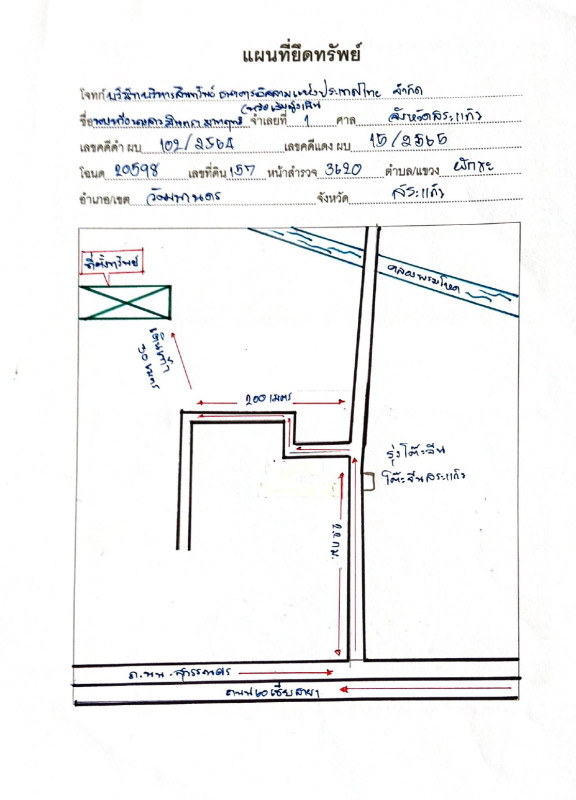 แผนที่ยึดทรัพย์
โจทก์ บริษัทบริหารสินทรัพย์ ธนาคารอิสลามแห่งประเทศไทย จำกัด
ชื่อ จำเลยที่ 1 ศาล จังหวัดสระแก้ว
เลขคดีดำ ผบ 102/2564 เลขคดีแดง ผบ 15/2565
โฉนด 20598 เลขที่ดิน 157 หน้าสำรวจ 3620 ตำบล/แขวง ผักขะ
อำเภอ/เขต วัฒนานคร จังหวัด สระแก้ว
ที่ตั้งทรัพย์
คลองพรมโหด
เดินเท้า
50 เมตร
200 เมตร
รุ่งโต๊ะจีน
โต๊ะจีนสระแก้ว
ถ.นน.สุวรรณศร